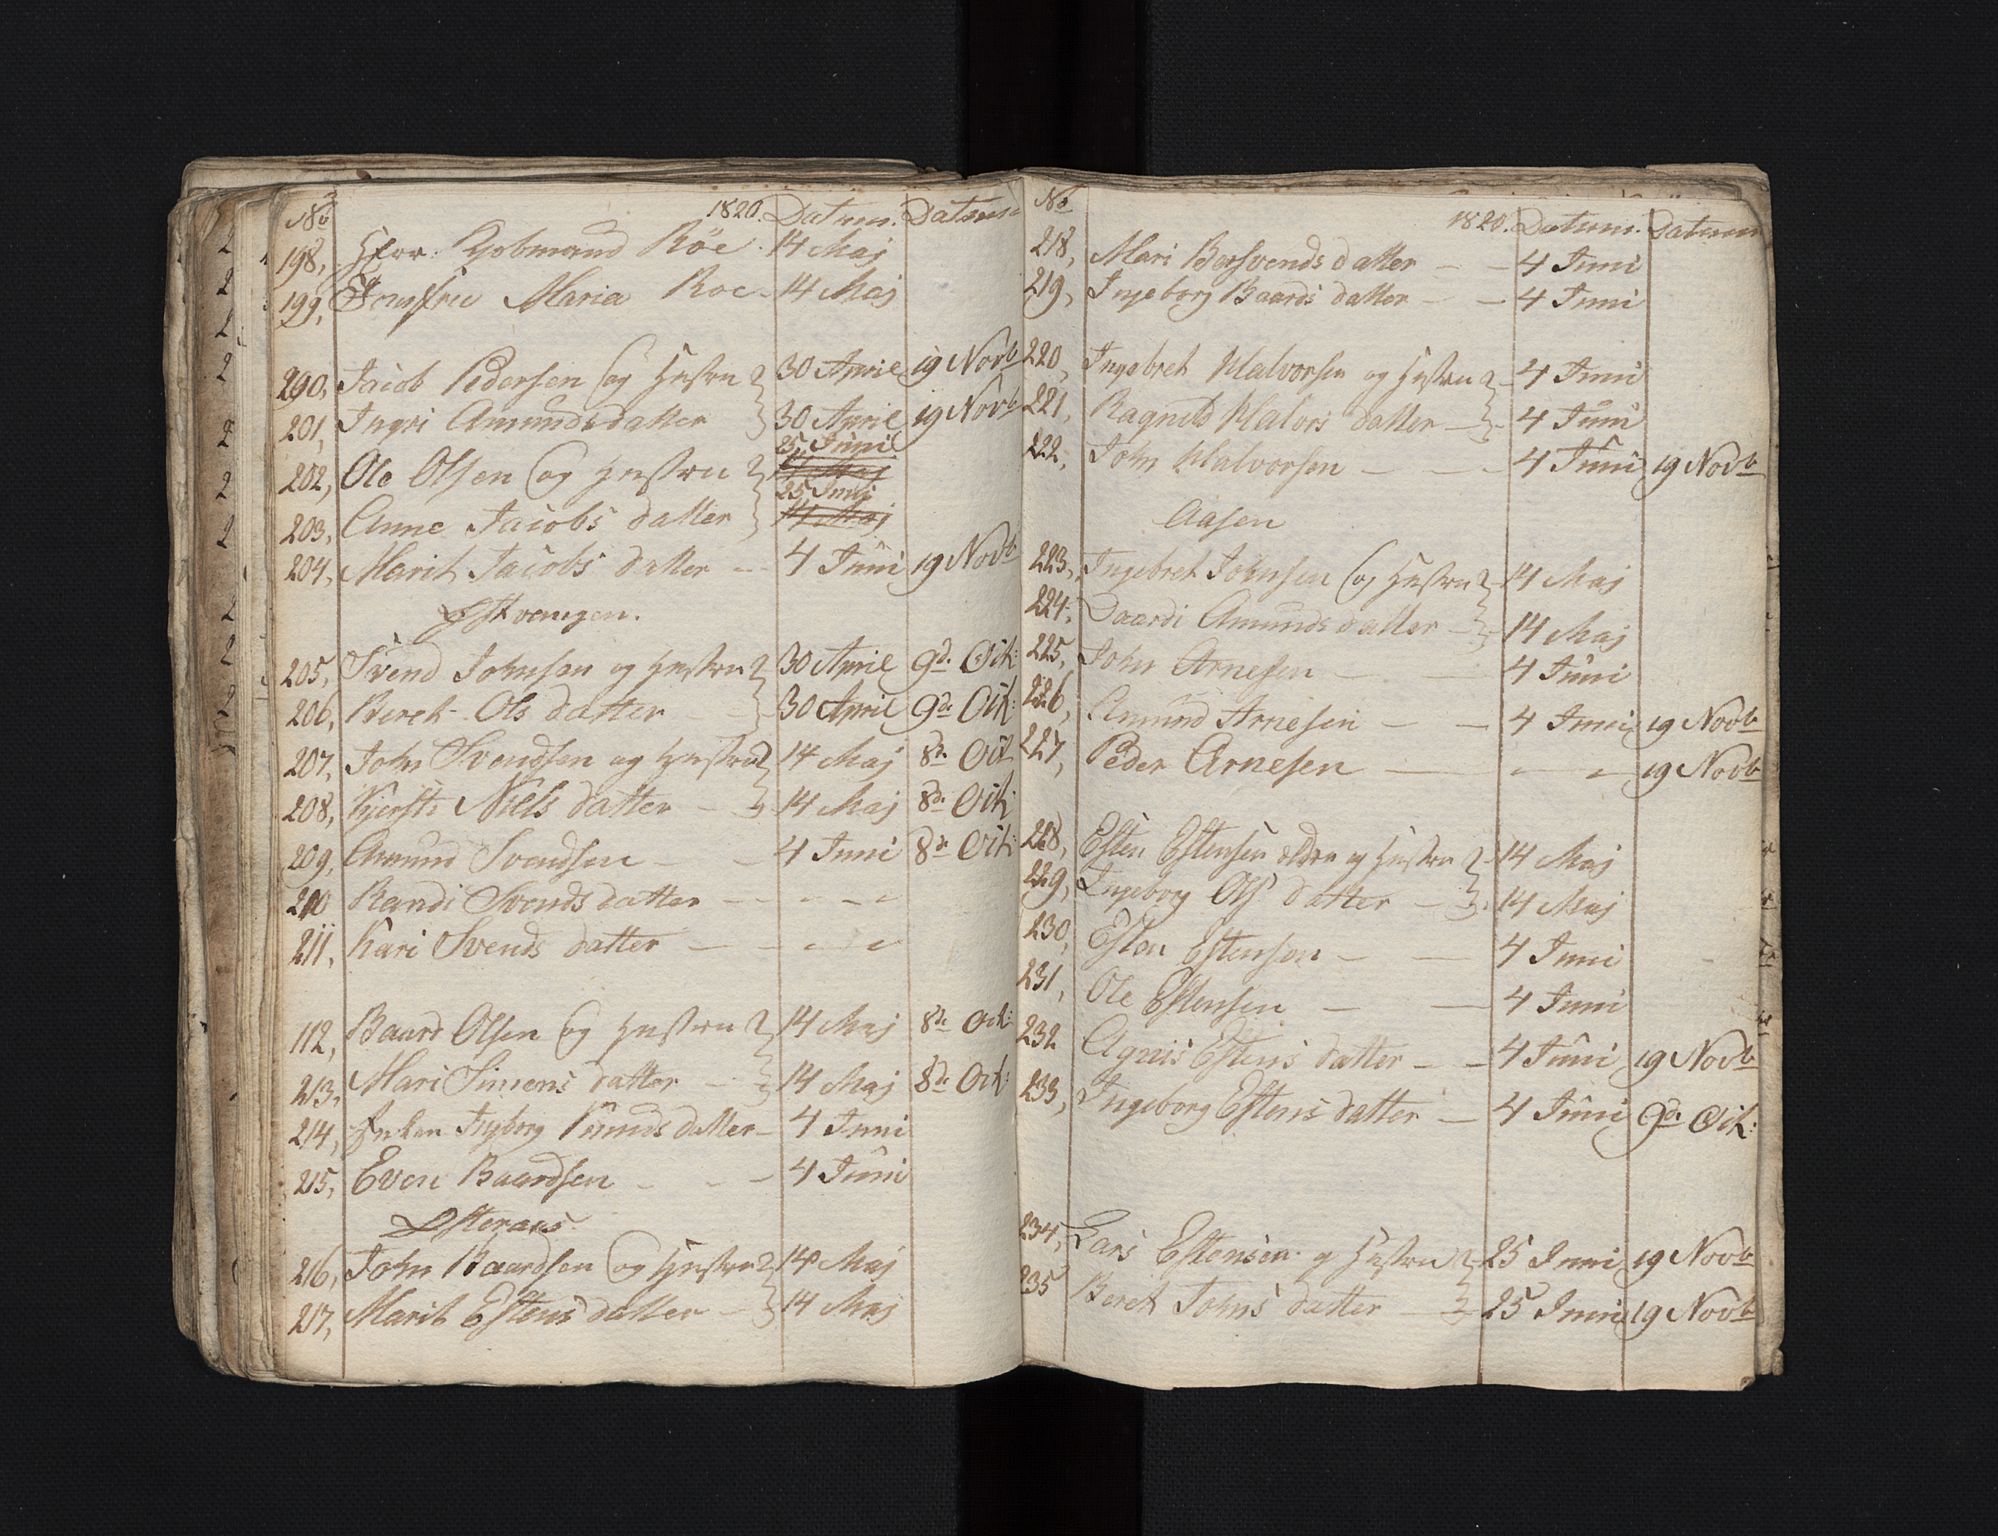 No 1820. Datum. Datum
198, Herr Kobmand Röe. 14 Maj
199, Jomfrue Maria Roe - 14 Maj
290, Jacob Pedersen og Hustru 30 April 19 Novb
201, Ingri Amundsdatter 30 April 19 Novb
25 Juni
202, Ole Olsen og Hustru 14 Maj
25 Juni
203, Anne Jacobs datter 14 Maj
204, Marit Jacobs datter - - 4 Juni 19 Novb
Østvangen.
205, Svend Johnsen og Hustru 30 April 9d. Oct:
206, Beret Ols datter - 30 April 9d. Oct:
207, John Svendsen og Hustru 14 Maj 8d. Oct
208, Kjersti Niels datter - 14 Maj 8d. Oct:
209, Amund Svendsen - - 4 Juni 8d. Oct:
210 Randi Svends datter - - - - -
211, Kari Svends datter - - - -
112, Baard Olsen og Hustru 14 Maj 8de Oct:
213, Mari Simens datter - 14 Maj 8de Oct:
214, Enken Ingborg datter - 4 Juni
215, Even Baardsen - - - 4 Juni
Østeraas
216, John Baardsen og Hustru 14 Maj
217, Marit Estens datter - 14 Maj
No 1820. Datum. Datum
218, Mari Bersvends datter - - 4 Juni
219, Ingeborg Baards datter - - 4 Juni
220, Ingebret Halvorsen og Hustru - 4 Juni
221, Ragnild Halvors datter - - 4 Juni
222, John Halvorsen - - - 4 Juni 19 Novb
Aasen
223, Ingebret Johnsen og Hustru - 14 Maj
224, Baardi Amunds datter - - 14 Maj
225, John Arnesen - - - 4 Juni
226, Amund Arnesen - - 4 Juni 19 Novb
227, Peder Arnesen - - - 19 Novb
228, Esten Estensen ældre og Hustru - 14 Maj
229, Ingeborg Ols datter - - 14 Maj
230, Esten Estensen - - 4 Juni
231, Ole Estensen - - 4 Juni
232 Agnis Estens datter - - 4 Juni 19 Novb
233, Ingeborg Estens datter - 4 Juni 9d. Oct:
234, Lars Estensen og Hustru - 25 Juni 19 Novb
235 Beret Johns datter - 25 Juni 19 Novb